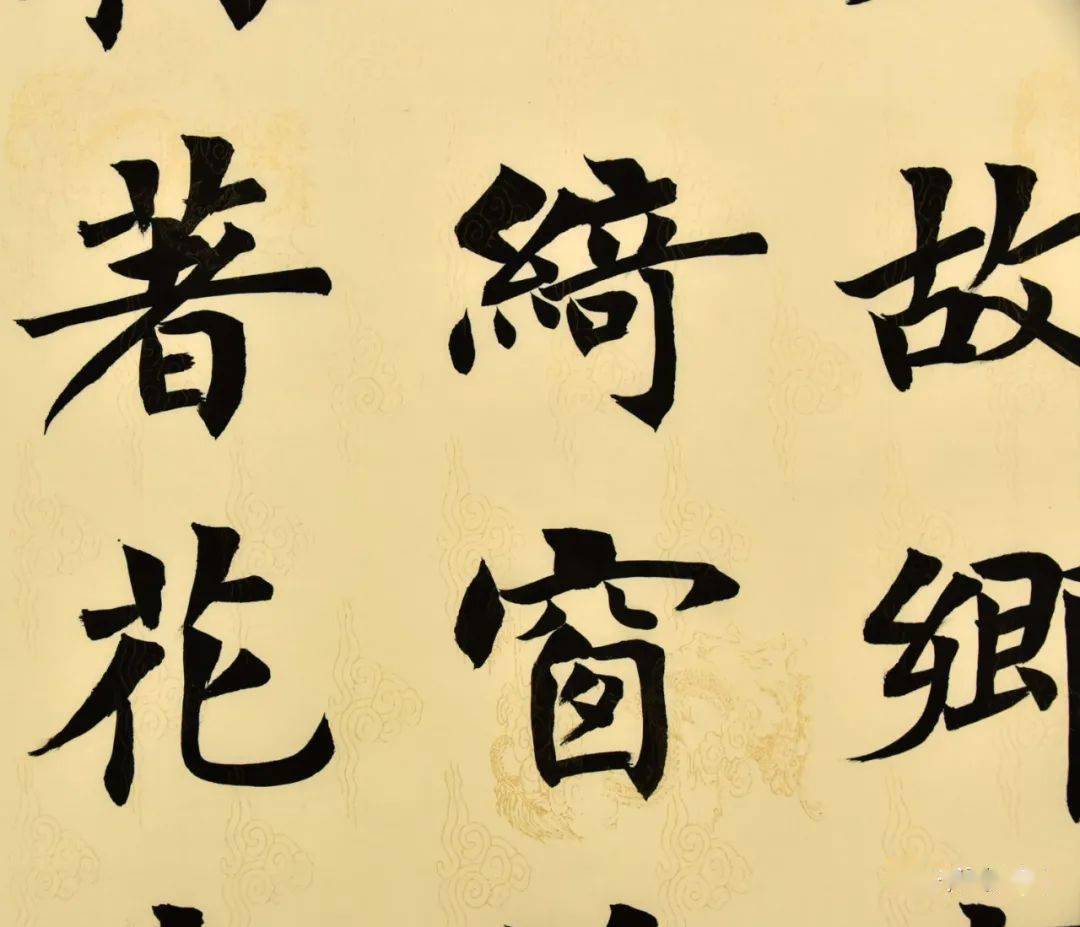 故鄉
綺窗
著花